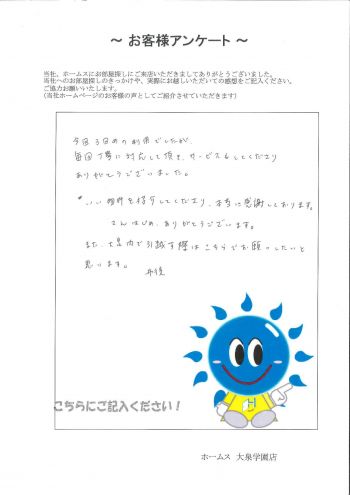 ～ お客様アンケート ～
当社、ホームスにお部屋探しにご来店いただきましてありがとうございました。
当社へのお部屋探しのきっかけや、実際にお越しいただいての感想をご記入ください。
ご協力お願いいたします。
(当社ホームページのお客様の声としてご紹介させていただきます)
今回3回めの利用でしたが
毎回丁寧に対応して頂き、サービスもしてくださり
ありがとうございました。
いい物件を紹介してくださり、本当に感謝しております。
さんはじめ、ありがとうございます。
また、大泉内で引越す際はこちらでお願いしたいと
思います。
こちらにご記入ください！
ホームス 大泉学園店